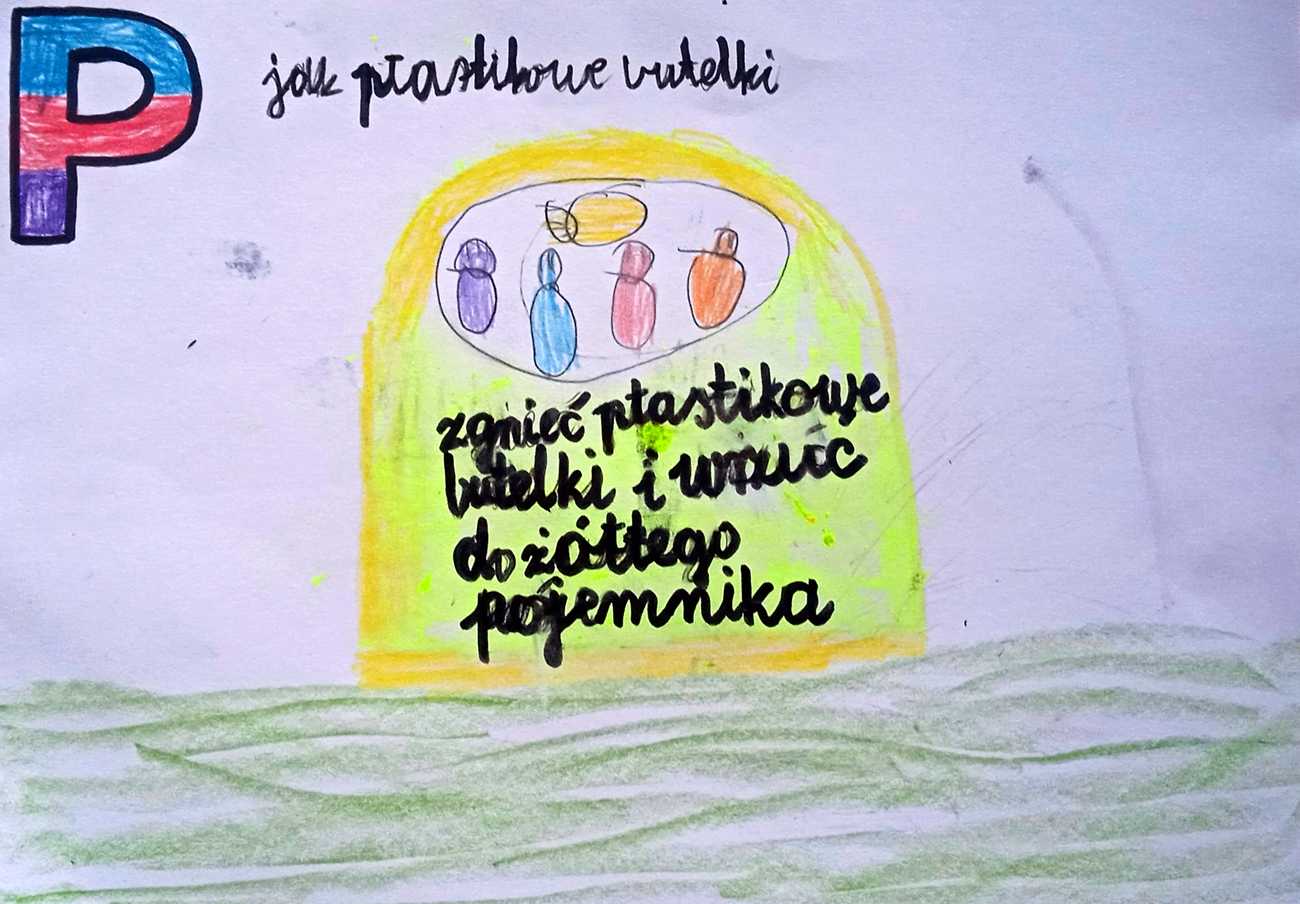 P jak plastikowe butelki
zgnieć plastikowe
butelki i wrzuć
do żółtego
pojemnika